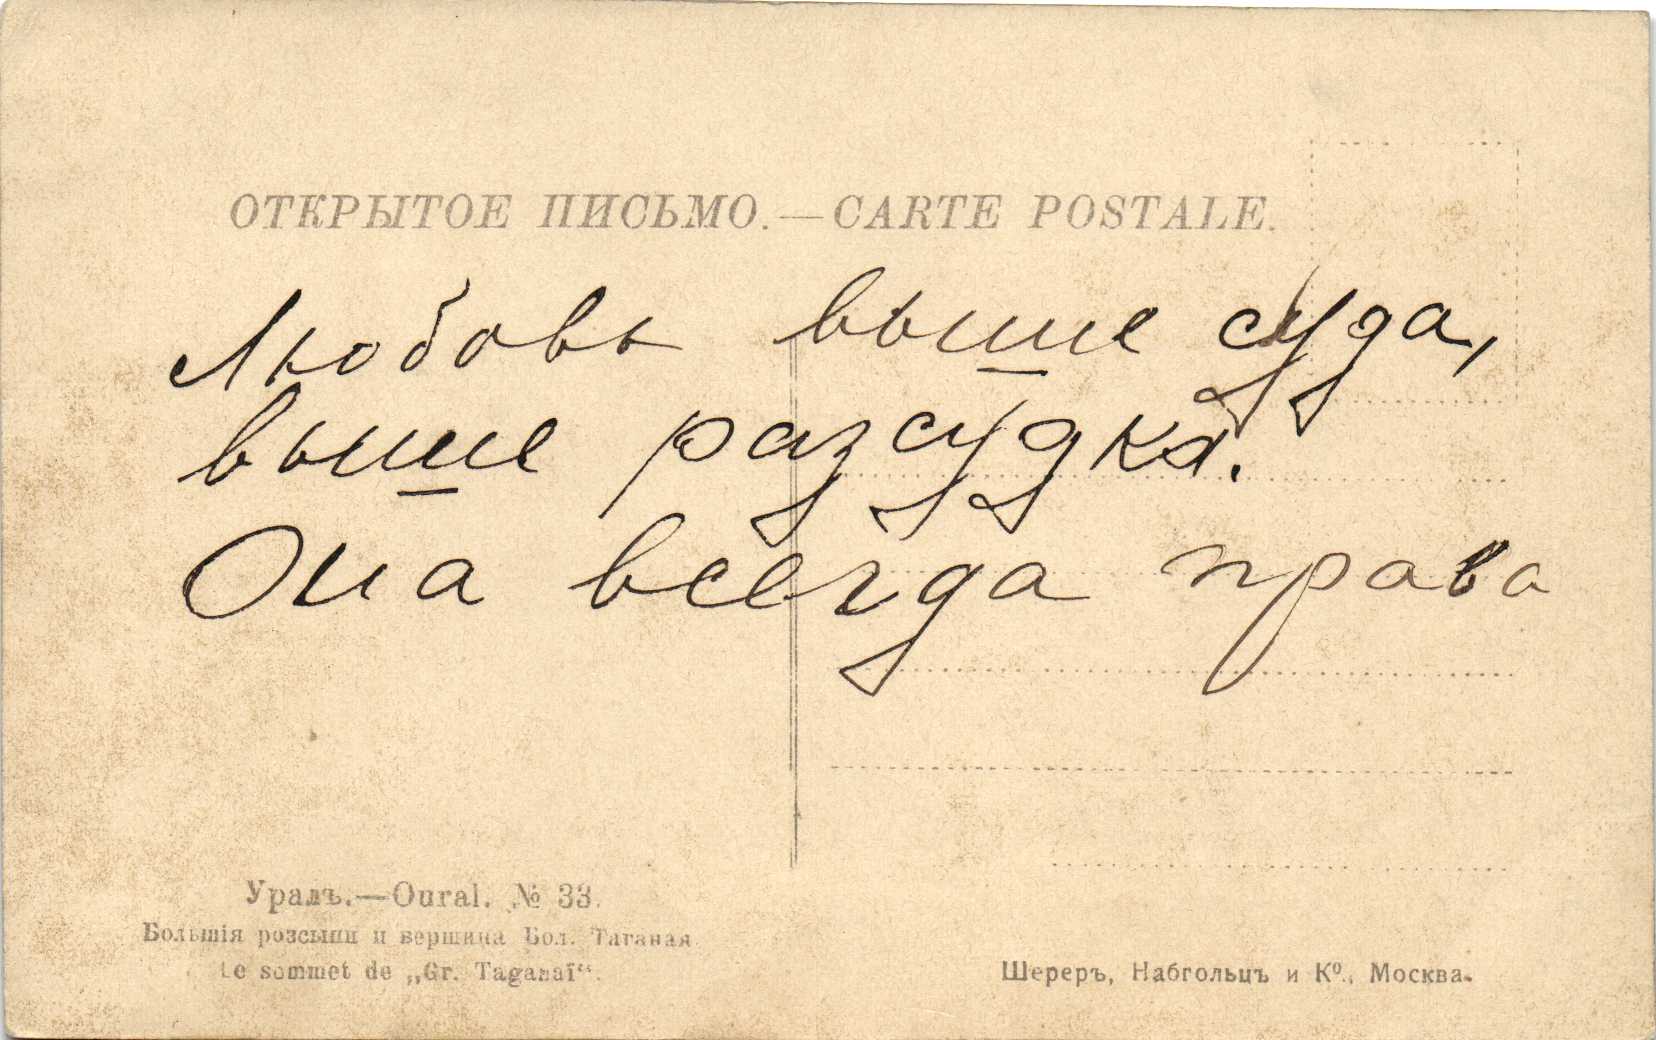 ОТКРЫТОЕ ПИСЬМО.—CARTE POSTALE.
Любовь выше суда,
выше разсудка.
Она всегда права
Уралъ.—Oural. № 33.
Большія розсыпи и вершина Бол. Таганая
Le sommet de „Gr. Taganaï“.
Шереръ, Набгольцъ и Кº., Москва.